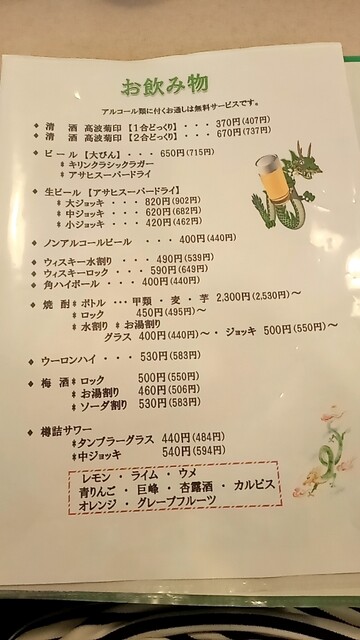 お飲み物
アルコール類に付くお通しは無料サービスです。
◆ 清 酒 高波菊印【1合どっくり】・・・ 370円(407)
◆ 清 酒 高波菊印【2合どっくり】・・・ 670円(737)
◆ ビール【大びん】・・・ 650円(715)
＊キリンクラシックラガー
＊アサヒスーパードライ
◆ 生ビール【アサヒスーパードライ】
＊大ジョッキ ・・・ 820円(902)
＊中ジョッキ ・・・ 620円(682)
＊小ジョッキ ・・・ 420円(462)
◆ ノンアルコールビール ・・・ 400円(440)
◆ ウィスキー水割り ・・・ 490円(539)
◆ ウィスキーロック ・・・ 590円(649)
◆ 角ハイボール ・・・ 400円(440)
◆ 焼 酎＊ボトル ・・・甲類・麦・芋 2,300円(2,530円)～
＊ロック 450円(495円)～
＊水割り ＊お湯割り
グラス 400円(440円)～・ジョッキ 500円(550円)～
◆ ウーロンハイ ・・・ 530円(583円)
◆ 梅 酒＊ロック 500円(550円)
＊お湯割り 460円(506円)
＊ソーダ割り 530円(583円)
◆ 樽詰サワー
＊タンブラーグラス 440円(484円)
＊中ジョッキ 540円(594円)
レモン ・ ライム ・ ウメ
青りんご ・ 巨峰 ・ 杏露酒 ・ カルピス
オレンジ ・ グレープフルーツ